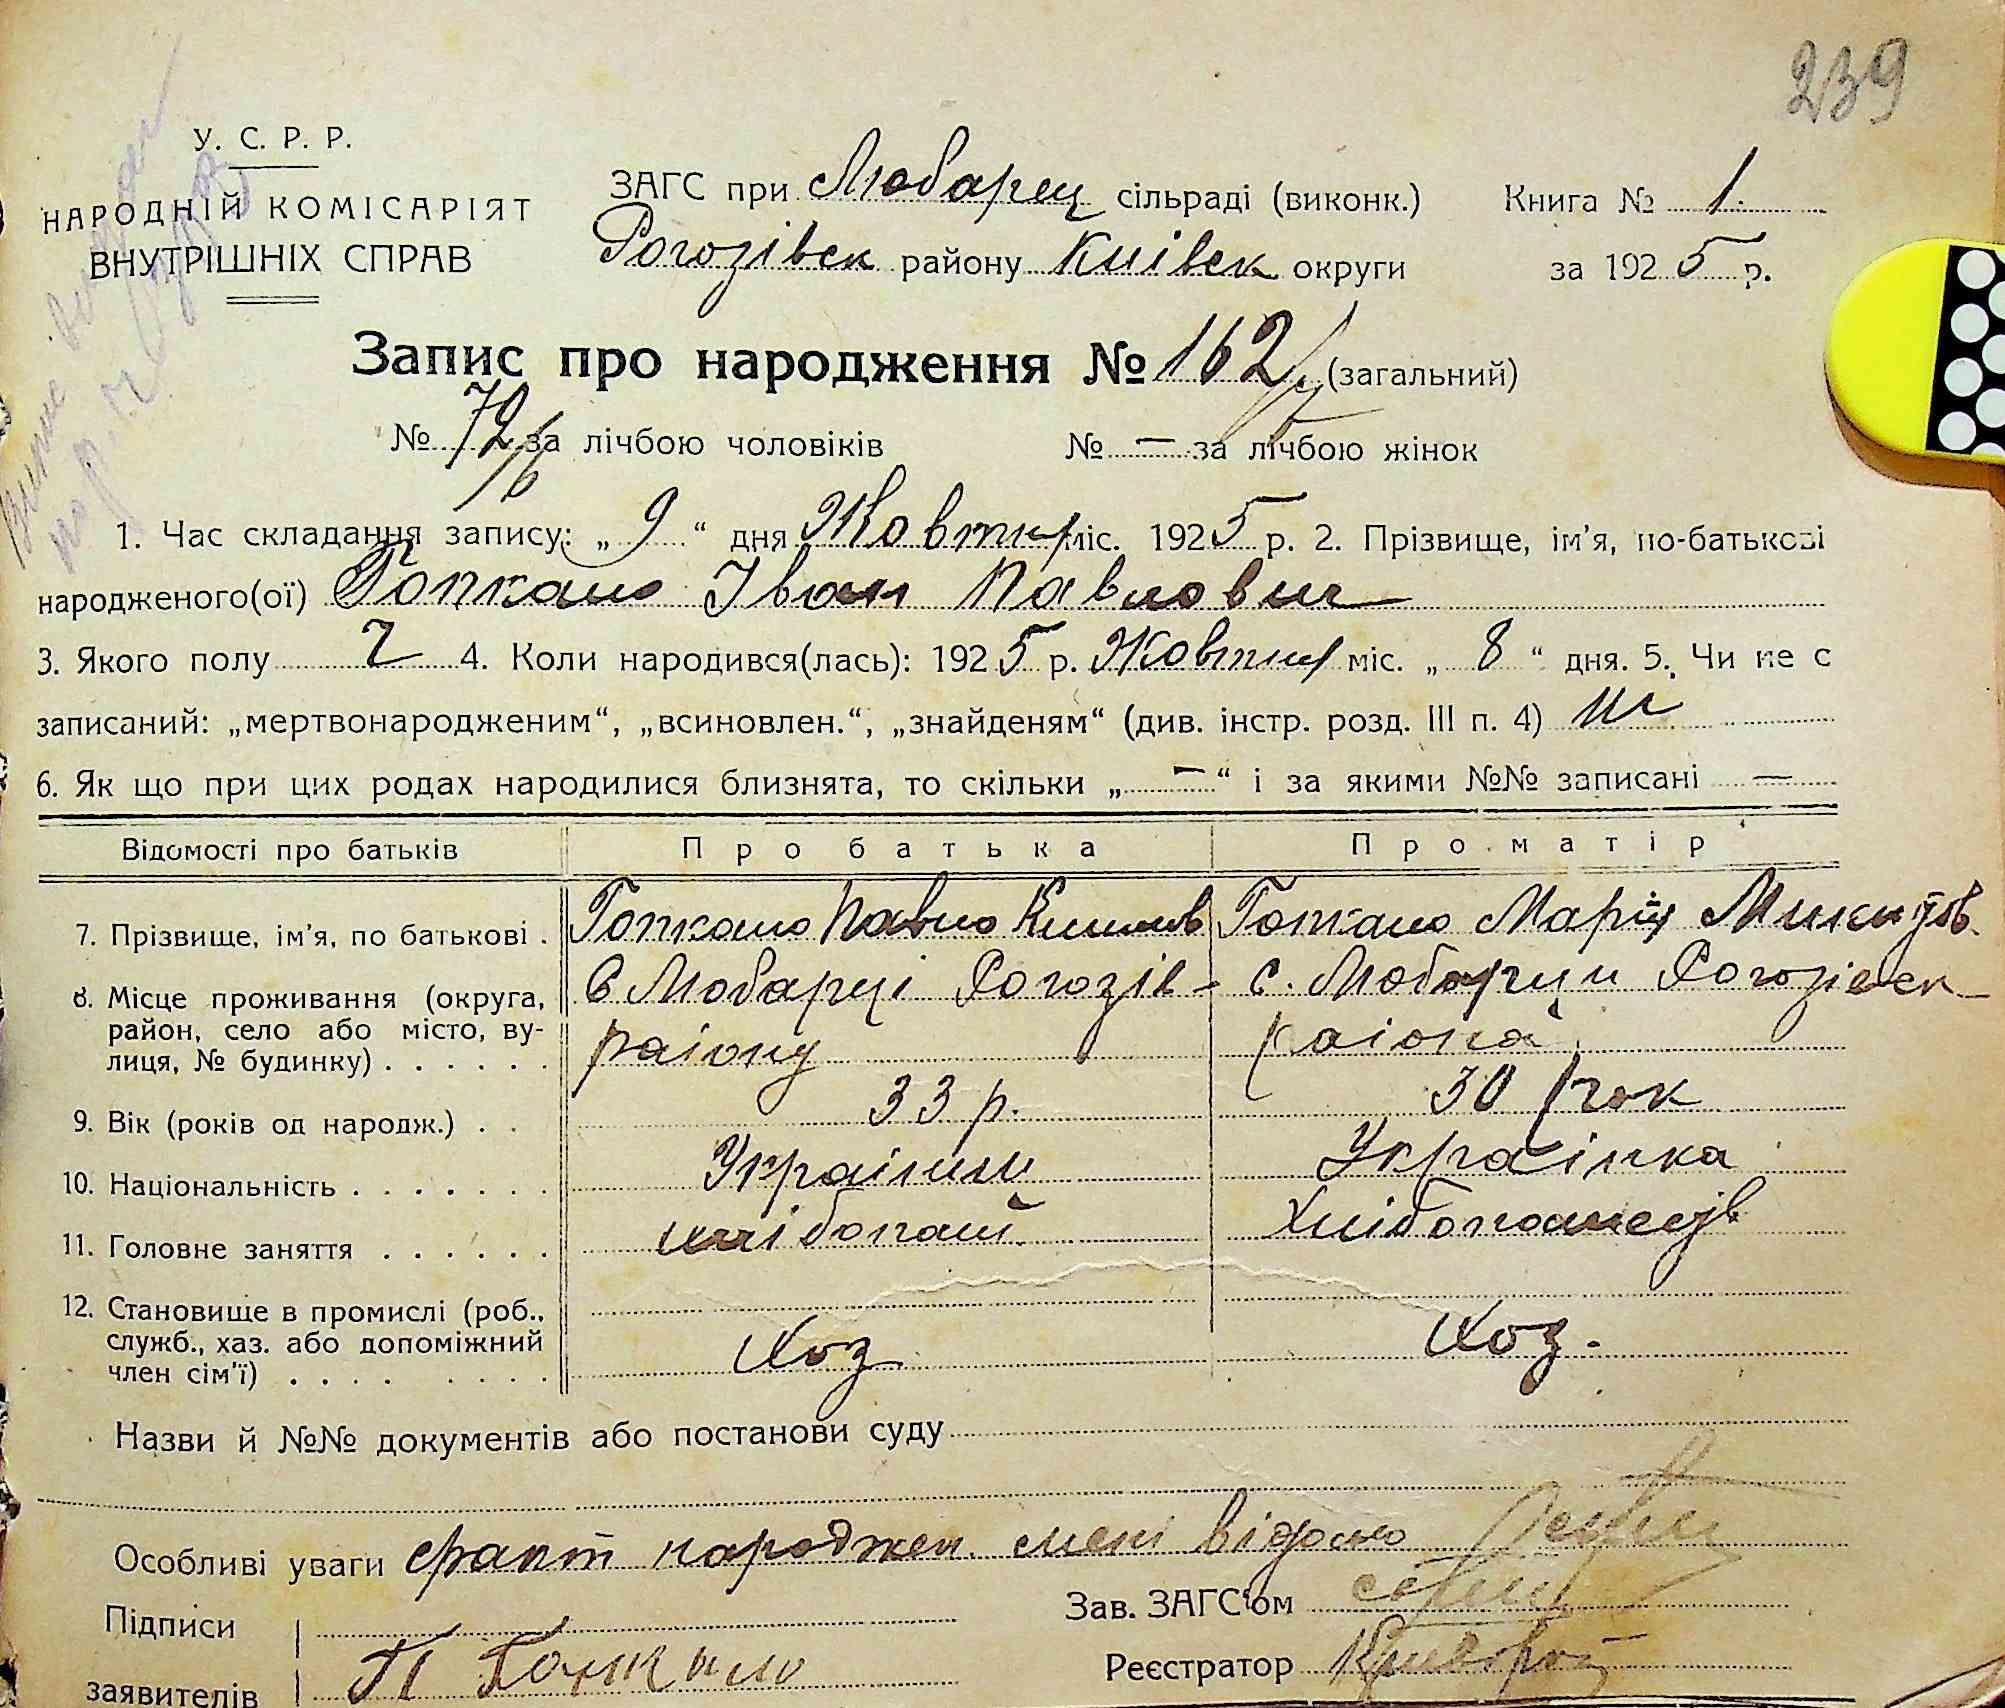 239
У. С. Р. Р.
НАРОДНІЙ КОМІСАРІЯТ
ВНУТРІШНІХ СПРАВ
ЗАГС при Любарец сільраді (виконк.)
Рогозівск району Київск округи
Книга № 1.
за 1925 р.
Запис про народження № 162 (загальний)
№ 72 за лічбою чоловіків № — за лічбою жінок
1. Час складання запису: „ 9 “ дня Жовтня міс. 1925 р. 2. Прізвище, ім’я, по-батькові
народженого(ої) Гопкало Іван Павлович
3. Якого полу Ч 4. Коли народився(лась): 1925 р. Жовтня міс. „ 8 “ дня. 5. Чи не є
записаний: „мертвонародженим“, „всиновлен.“, „знайденям“ (див. інстр. розд. III п. 4) ні
6. Як що при цих родах народилися близнята, то скільки „ — “ і за якими №№ записані —
Відомості про батьків Про батька Про матір
7. Прізвище, ім’я, по батькові . Гопкало Павло Климов Гопкало Марія
8. Місце проживання (округа, район, село або місто, вулиця, № будинку) . . . . . . с Любарці Рогозів-
району
с. Любарци Рогозівск
раіона
9. Вік (років од народж.) . . 33 р. 30 рок
10. Національність . . . . . . . Украінец Украінка
11. Головне заняття . . . . . . хлібопаш.
12. Становище в промислі (роб., служб., хаз. або допоміжний член сім’ї) . . . . . . . . Хоз Хоз.
Назви й №№ документів або постанови суду
Особливі уваги факт народжен. мені відомо
Зав. ЗАГС’ом
Підписи
заявителів П Гопкало
Реєстратор